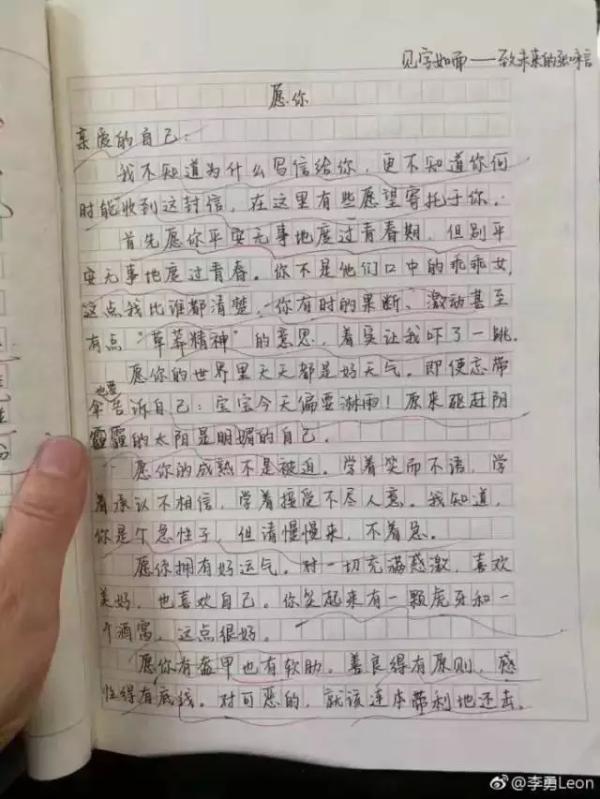 见字如面——致未来的一封信
愿你
亲爱的自己：
我不知道为什么写信给你，更不知道你何
时能收到这封信，在这里有些愿望寄托于你。
首先愿你平安无事地度过青春期，但别平
安无事地度过青春。你不是他们口中的乖乖女，
这点我比谁都清楚，你有时的果断、激动甚至
有点“草莽精神”的意思，着实让我吓了一跳。
愿你的世界里天天都是好天气。即使忘带
伞也要告诉自己：宝宝今天偏要淋雨！原来驱赶阴
霾的太阳是明媚的自己。
愿你的成熟不是被迫。学着笑而不语，学
着承认不相信，学着接受不尽人意。我知道，
你是个急性子，但请慢慢来，不着急。
愿你拥有好运气。对一切充满感激，喜欢
美好，也喜欢自己。你笑起来有一颗虎牙和一
个酒窝，这点很好。
愿你有盔甲也有软肋，善良得有原则，感
性得有底线。对可恶的，就该连本带利地还击。
@李勇Leon